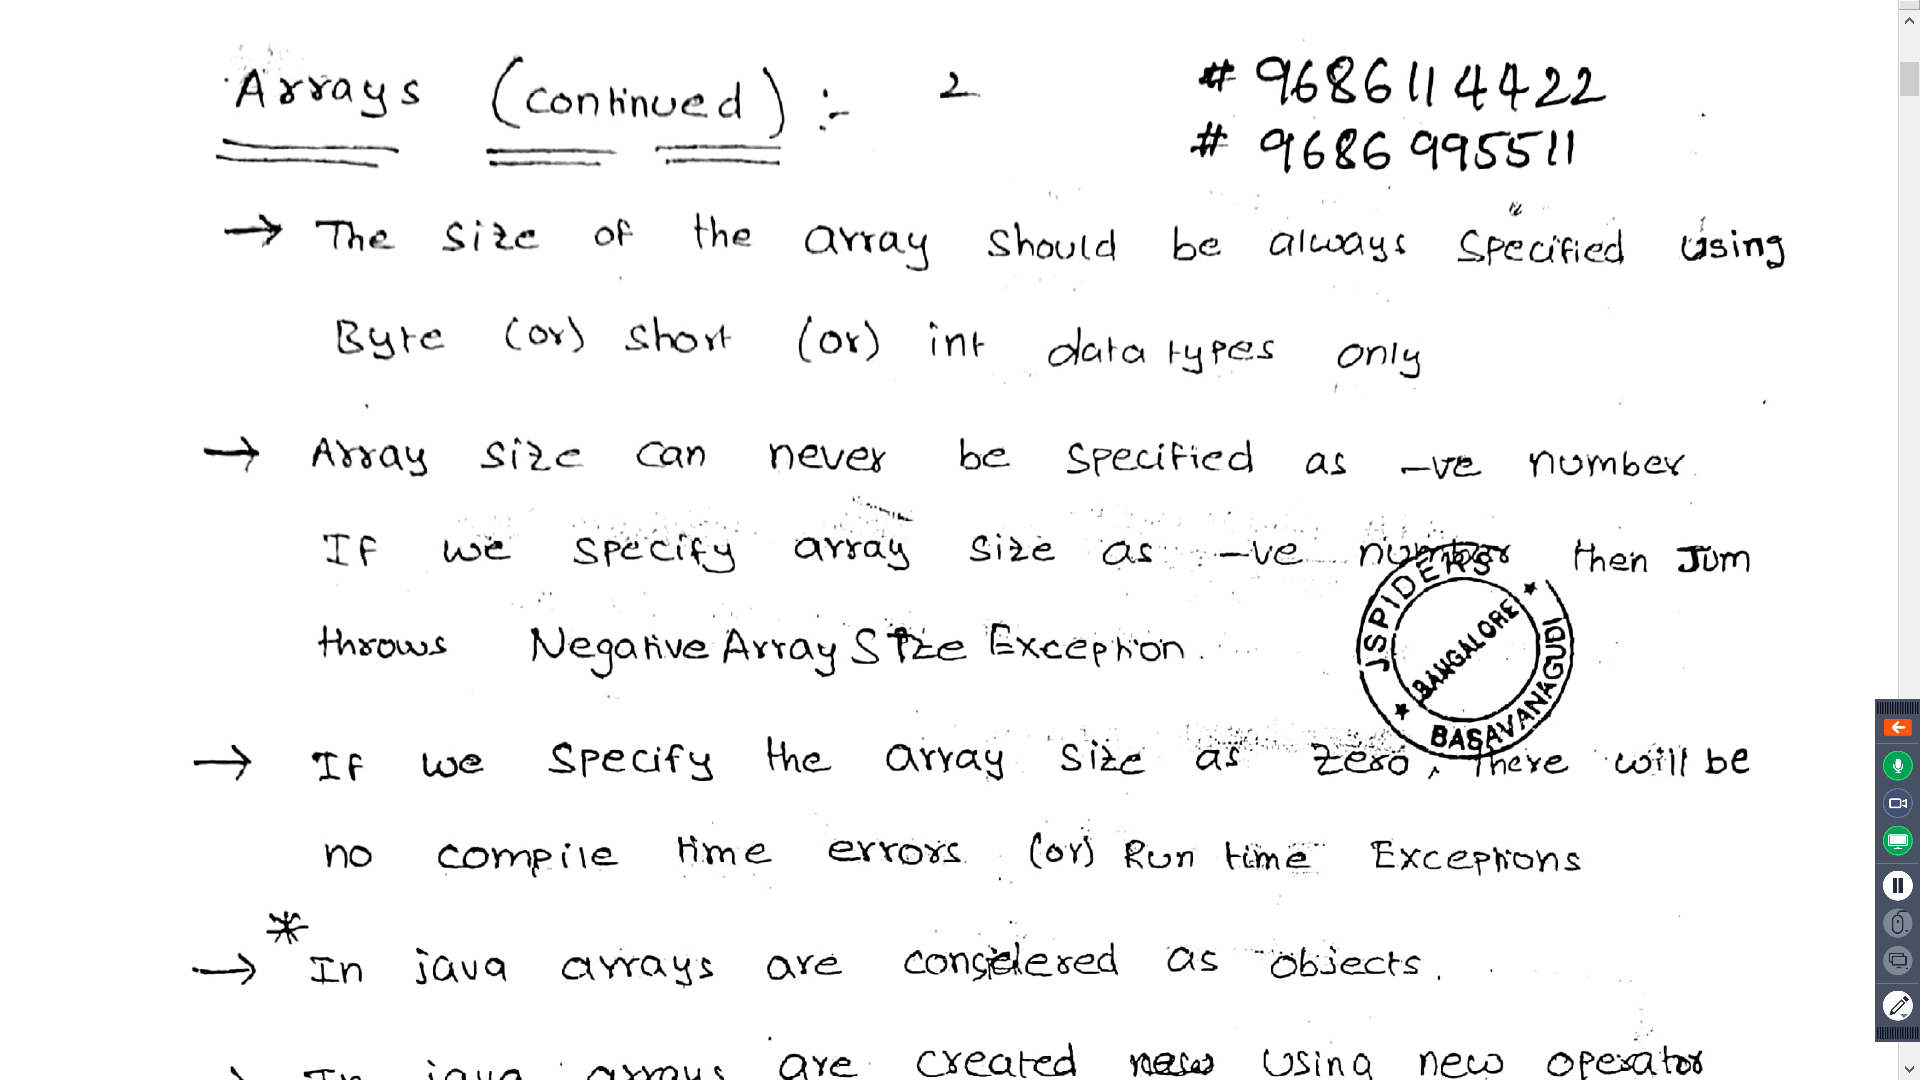 Arrays (continued) :- 2
# 9686114422
# 9686995511
→ The size of the array should be always specified using
Byte (or) short (or) int data types only
→ Array size can never be specified as -ve number.
If we specify array size as -ve number then JVM
throws Negative Array Size Exception.
JSPIDERS
BANGALORE
BASAVANAGUDI
→ If we specify the array size as zero, There will be
no compile time errors (or) Run time Exceptions
* → In java arrays are considered as objects.
→ In java arrays are created using new operator